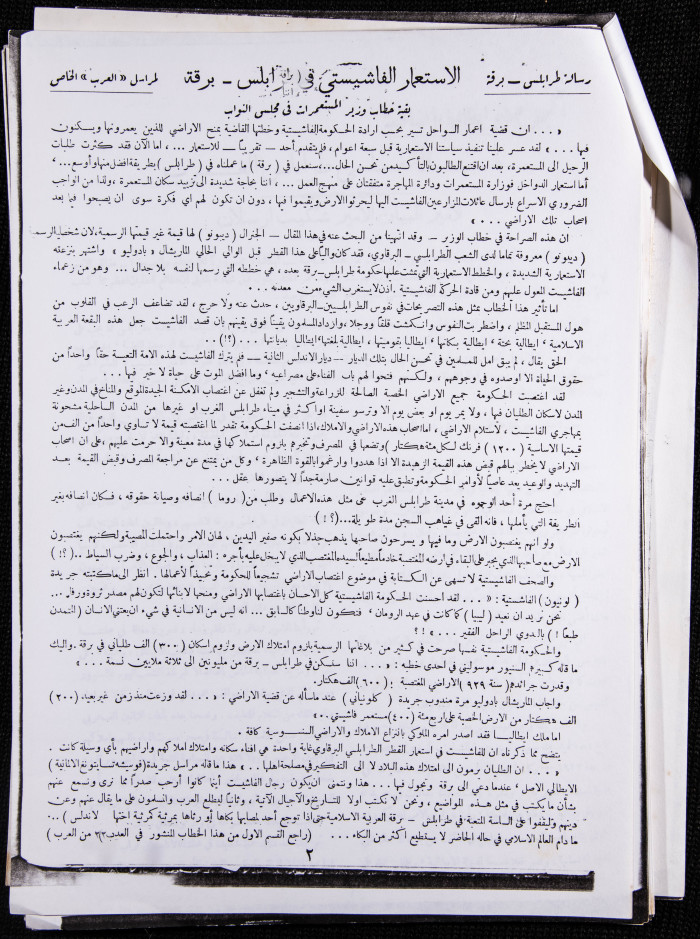 رسالة طرابلس – برقة
الاستعمار الفاشيستي في طرابلس – برقة
لمراسل «العرب» الخاص
بقية خطاب وزير المستعمرات في مجلس النواب
« . . . ان قضية اعمار السواحل تسير بحسب ارادة الحكومة الفاشيستية وخطتها القاضية بمنح الاراضي للذين يعمرونها ويسكنون
فيها . . . » لقد عسر علينا تنفيذ سياستنا الاستعمارية قبل سبعة اعوام ، فلم يتقدم أحد – تقريباً – للاستعمار ... ، اما الآن فقد كثرت طلبات
الرحيل الى المستعمرة ، بعد ان اقتنع الطالبون بالتأكيد من تحسن الحال...، سنعمل في ( برقة ) ما عملناه في ( طرابلس ) بطريقة افضل منها وأوسع...،
أما استعمار الدواخل فوزارة المستعمرات ودائرة المهاجرة متفقتان على منهج العمل ... ، اننا بحاجة شديدة الى تزييد سكان المستعمرة ، ولذا من الواجب
الضروري الاسراع بارسال عائلات المزارعين الفاشيست اليها ليحرثوا الارض ويقيموا فيها ، دون ان تكون لهم اي فكرة سوى ان يصبحوا فيما بعد
اصحاب تلك الاراضي . . . »
ان هذه الصراحة في خطاب الوزير – وقد انتهينا من البحث عنه في هذا المقال – الجنرال ( ديبونو ) لها قيمة غير قيمتها الرسمية ، لان شخصية الرسمية
( ديبونو ) معروفة تماما لدى الشعب الطرابلسي – البرقاوي ، فقد كان والياً على هذا القطر قبل الوالي الحالي الماريشال « بادوليو » واشتهر بنزعته
الاستعمارية الشديدة ، والخطط الاستعمارية التي تمشت عليها حكومة طرابلس – برقة بعده ، هي خططه التي رسمها لنفسه بلا جدال ... وهو من زعماء
الفاشيست المعول عليهم ومن قادة الحركة الفاشيستية . اذن لا يستغرب الشيء من معدنه . . .
اما تأثير هذا الخطاب بمثل هذه التصريحات في نفوس الطرابلسيين – البرقاويين ، حدث عنه ولا حرج ، لقد تضاعف الرعب في القلوب من
هول المستقبل المظلم ، واضطربت النفوس وانكمشت قلقاً ووجلا ، وازداد المسلمون يقيناً فوق يقينهم بان قصد الفاشيست جعل هذه البقعة العربية
الاسلامية ' ايطالية بحتة ، ايطالية بسكانها ' ايطاليا بقوميتها ، ايطالية بلغتها ' ايطاليا بديانتها ... (؟!) . .
الحق يقال ، لم يبق امل للمسلمين في تحسن الحال بتلك الديار – ديار الاندلس الثانية – فلم يترك الفاشيست لهذه الامة التعيسة حقاً واحداً من
حقوق الحياة الا اوصدوه في وجوههم ، ولكنهم فتحوا لهم باب الفناء على مصراعيه ' وما افضل الموت على حياة لا خير فيها . . .
لقد اغتصبت الحكومة جميع الاراضي الخصبة الصالحة للزراعة والتشجير ولم تغفل عن اغتصاب الامكنة الجيدة الموقع والمناخ في المدن وغير
المدن لاسكان الطليان فيها ، ولا يمر يوم او بعض يوم الا وترسو سفينة او اكثر في ميناء طرابلس الغرب او غيرها من المدن الساحلية مشحونة
بمهاجري الفاشيست ، لاستلام الاراضي ، اما اصحاب هذه الاراضي والاملاك ، اذا انصفت الحكومة تقدر لما اغتصبته قيمة لا تساوي واحداً من الف من
قيمتها الاساسية ( ١٢٠٠ ) فرنك لكل مئة هكتار ) وتضعها في المصرف وتخبرهم بلزوم استلامها في مدة معينة والا حرمت عليهم ، على ان اصحاب
الاراضي لا يخطر ببالهم قبض هذه القيمة الزهيدة الا اذا هددوا وارغموا بالقوة الظاهرة ' وكل من يمتنع عن مراجعة المصرف وقبض القيمة بعد
التهديد والوعيد يعد عاصياً لأوامر الحكومة وتطبق عليه قوانين صارمة جداً لا يتصورها عقل . . .
احتج مرة أحد الوجوه في مدينة طرابلس الغرب على مثل هذه الاعمال وطلب من ( روما ) انصافه وصيانة حقوقه ، فكان انصافه بغير
الطريقة التي يأملها ، فانه القي في غياهب السجن مدة طويلة...(؟!)
ولو انهم يغتصبون الارض وما فيها ويسرحون صاحبها يذهب جذلا بكونه صفير اليدين ، لهان الامر واحتملت المصيبة ولكنهم يغتصبون
الارض مع صاحبها الذي يجبر على البقاء في ارضه المغتصبة خادماً مطيعاً لسيده المغتصب الذي لا يبخل عليه بأجره : العذاب ، والجوع ، وضرب السياط .. (؟!)
والصحف الفاشيستية لا تسهى عن الكتابة في موضوع اغتصاب الاراضي تشجيعاً للحكومة وتحبيذاً لأعمالها . انظر الى ما كتبته جريدة
( لونيون ) الفاشيستية : « . . . لقد أحسنت الحكومة الفاشيستية كل الاحسان باغتصابها الاراضي ومنحها لابنائها لتكون لهم مصدر ثروة ورفاه ...
نحن نريد ان نعيد ( ليبيا ) كما كانت في عهد الرومان ' فتكون لنا وطناً كالسابق ... انه ليس من الانسانية في شيء ان يعتني الانسان ( المتمدن
طبعاً ! ) بالبدوي الراحل الفقير . . . » ! ؟
والحكومة الفاشيستية نفسها صرحت في كثير من بلاغاتها الرسمية بلزوم امتلاك الارض ولزوم اسكان ( ٣٠٠ ) الف طلياني في برقة . واليك
ما قاله كبيرهم السنيور موسوليني في احدى خطبه : « . . . اننا سنسكن في طرابلس – برقة من مليونين الى ثلاثة ملايين نسمة . . . »
وقدرت جرائدهم ( سنة ٩٢٩ ) الاراضي المغتصبة : ( ٦٠٠ ) الف هكتار .
واجاب الماريشال بادوليو مرة مندوب جريدة ( كلونيالي ) عندما سأله عن قضية الاراضي : « . . . لقد وزعت منذ زمن غير بعيد ( ٢٠٠ )
الف هكتار من الارض الخصبة على اربع مئة ( ٤٠٠ ) مستعمر فاشيستي . . »
اما ملك ايطاليا فقد اصدر امره الملوكي بانتزاع الاملاك والاراضي السنوسية كافة .
يتضح مما ذكرناه ان للفاشيست في استعمار القطر الطرابلسي البرقاوي غاية واحدة هي افناء سكانه وامتلاك املاكهم واراضيهم بأي وسيلة كانت .
« . . . ان الطليان يرمون الى امتلاك هذه البلاد لا الى التفكير في مصلحة اهلها . . » هذا ما قاله مراسل جريدة ( فوسيشه تسايتونغ الالمانية )
الايطالي الاصل ' عندما دعي الى برقة وتجول فيها . . . هذا ونتمنى ان يكون رجال الفاشيست أينما كانوا أرحب صدراً مما نرى ونسمع عنهم
بشأن ما يكتب في مثل هذه المواضيع ، ونحن لا نكتب اولا للتاريخ والأجيال الآتية ، وثانياً ليطلع العرب والمسلمون على ما يقال عنهم وعن
دينهم وليقفوا على الماسة المتعبة في طرابلس – برقة العربية الاسلامية حتى اذا توجع أحد لمصابها بكاها أو رثاها بمرثية كمرثية اختها « لاندلس » ..
ما دام العالم الاسلامي في حاله الحاضر لا يستطيع اكثر من البكاء . . . (راجع القسم الاول من هذا الخطاب المنشور في العدد ٣٢ من العرب)
٢